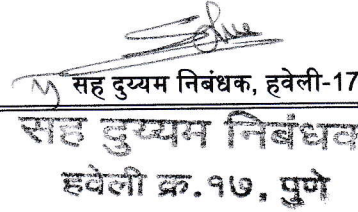 सह दुय्यम निबंधक, हवेली-17
सह दुय्यम निबंधक
हवेली क्र.१७, पुणे